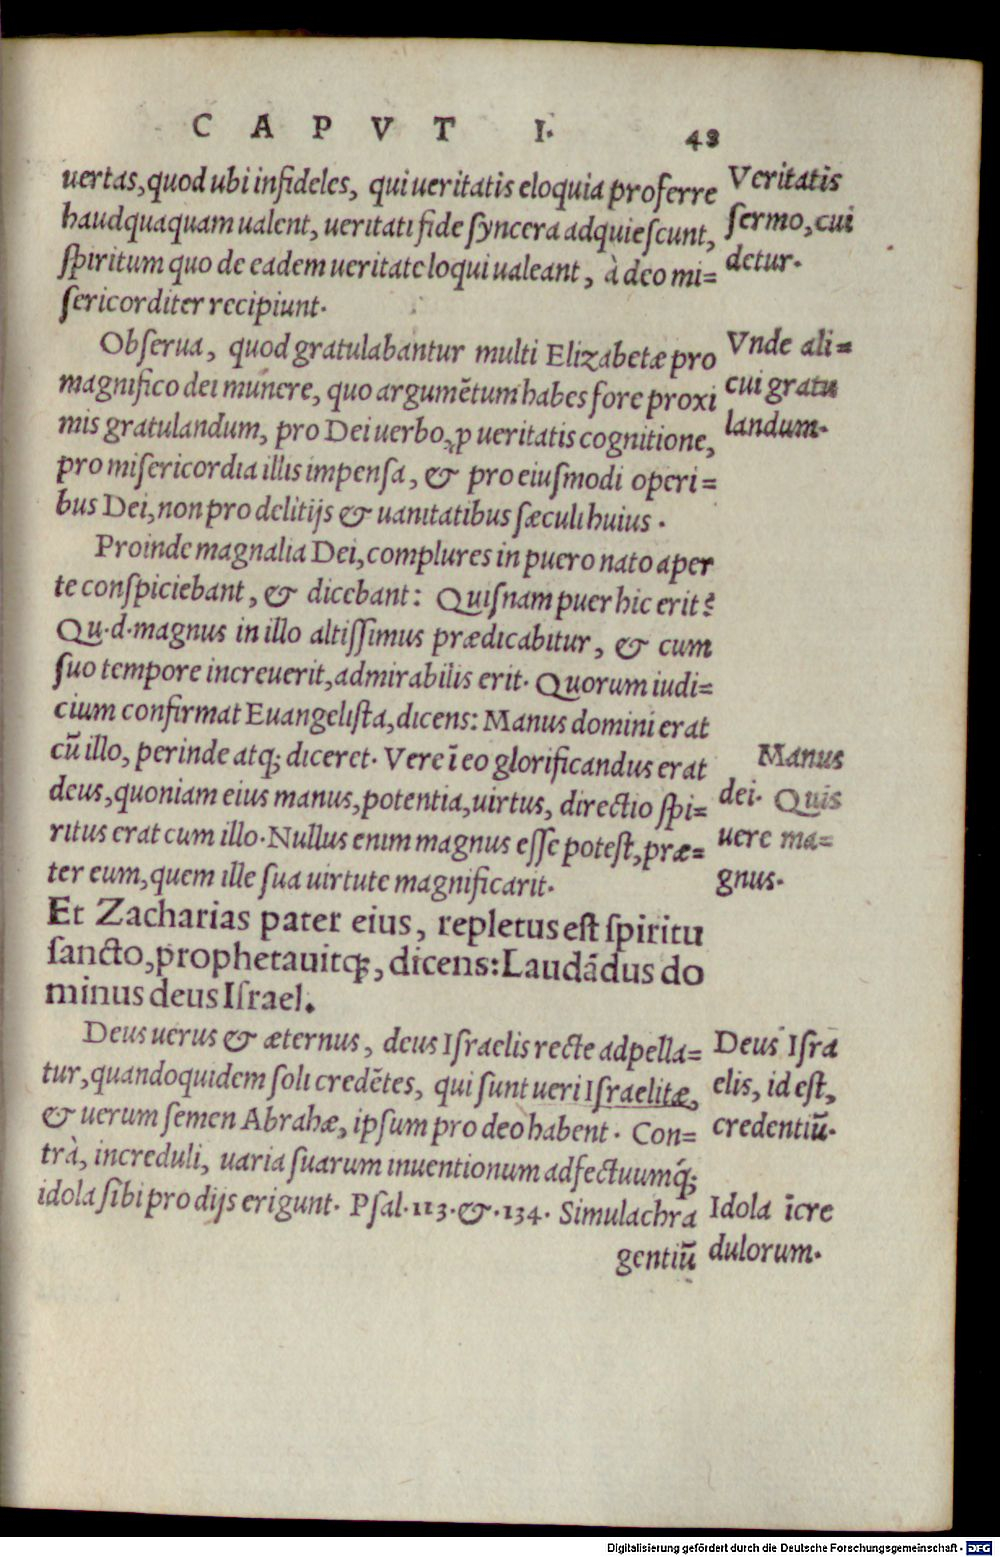 CAPVT I. 43
uertas, quod ubi infideles, qui ueritatis eloquia proferre
haudquaquam ualent, ueritati fide syncera adquiescunt,
spiritum quo de eadem ueritate loqui ualeant, à deo mi=
sericorditer recipiunt.
Veritatis
sermo, cui
detur.
Obserua, quod gratulabantur multi Elizabetæ pro
magnifico dei munere, quo argumẽtum habes fore proxi
mis gratulandum, pro Dei uerbo, ꝓ ueritatis cognitione,
pro misericordia illis impensa, & pro eiusmodi operi=
bus Dei, non pro delitijs & uanitatibus sæculi huius.
Vnde ali=
cui gratu
landum.
Proinde magnalia Dei, complures in puero nato aper
te conspiciebant, & dicebant: Quisnam puer hic erit?
Qu.d. magnus in illo altissimus prædicabitur, & cum
suo tempore increuerit, admirabilis erit. Quorum iudi=
cium confirmat Euangelista, dicens: Manus domini erat
cũ illo, perinde atq; diceret. Vere ĩ eo glorificandus erat
deus, quoniam eius manus, potentia, uirtus, directio spi=
ritus erat cum illo. Nullus enim magnus esse potest, præ=
ter eum, quem ille sua uirtute magnificarit.
Manus
dei. Quis
uere ma=
gnus.
Et Zacharias pater eius, repletus est spiritu
sancto, prophetauitq;, dicens: Laudãdus do
minus deus Israel.
Deus uerus & æternus, deus Israelis recte adpella=
tur, quandoquidem soli credẽtes, qui sunt ueri Israelitæ,
& uerum semen Abrahæ, ipsum pro deo habent. Con=
trà, increduli, uaria suarum inuentionum adfectuumq́;
idola sibi pro dijs erigunt. Psal. 113. &. 134. Simulachra
gentiũ
Deus Isra
elis, id est,
credentiũ.
Idola ĩcre
dulorum.
Digitalisierung gefördert durch die Deutsche Forschungsgemeinschaft - DFG